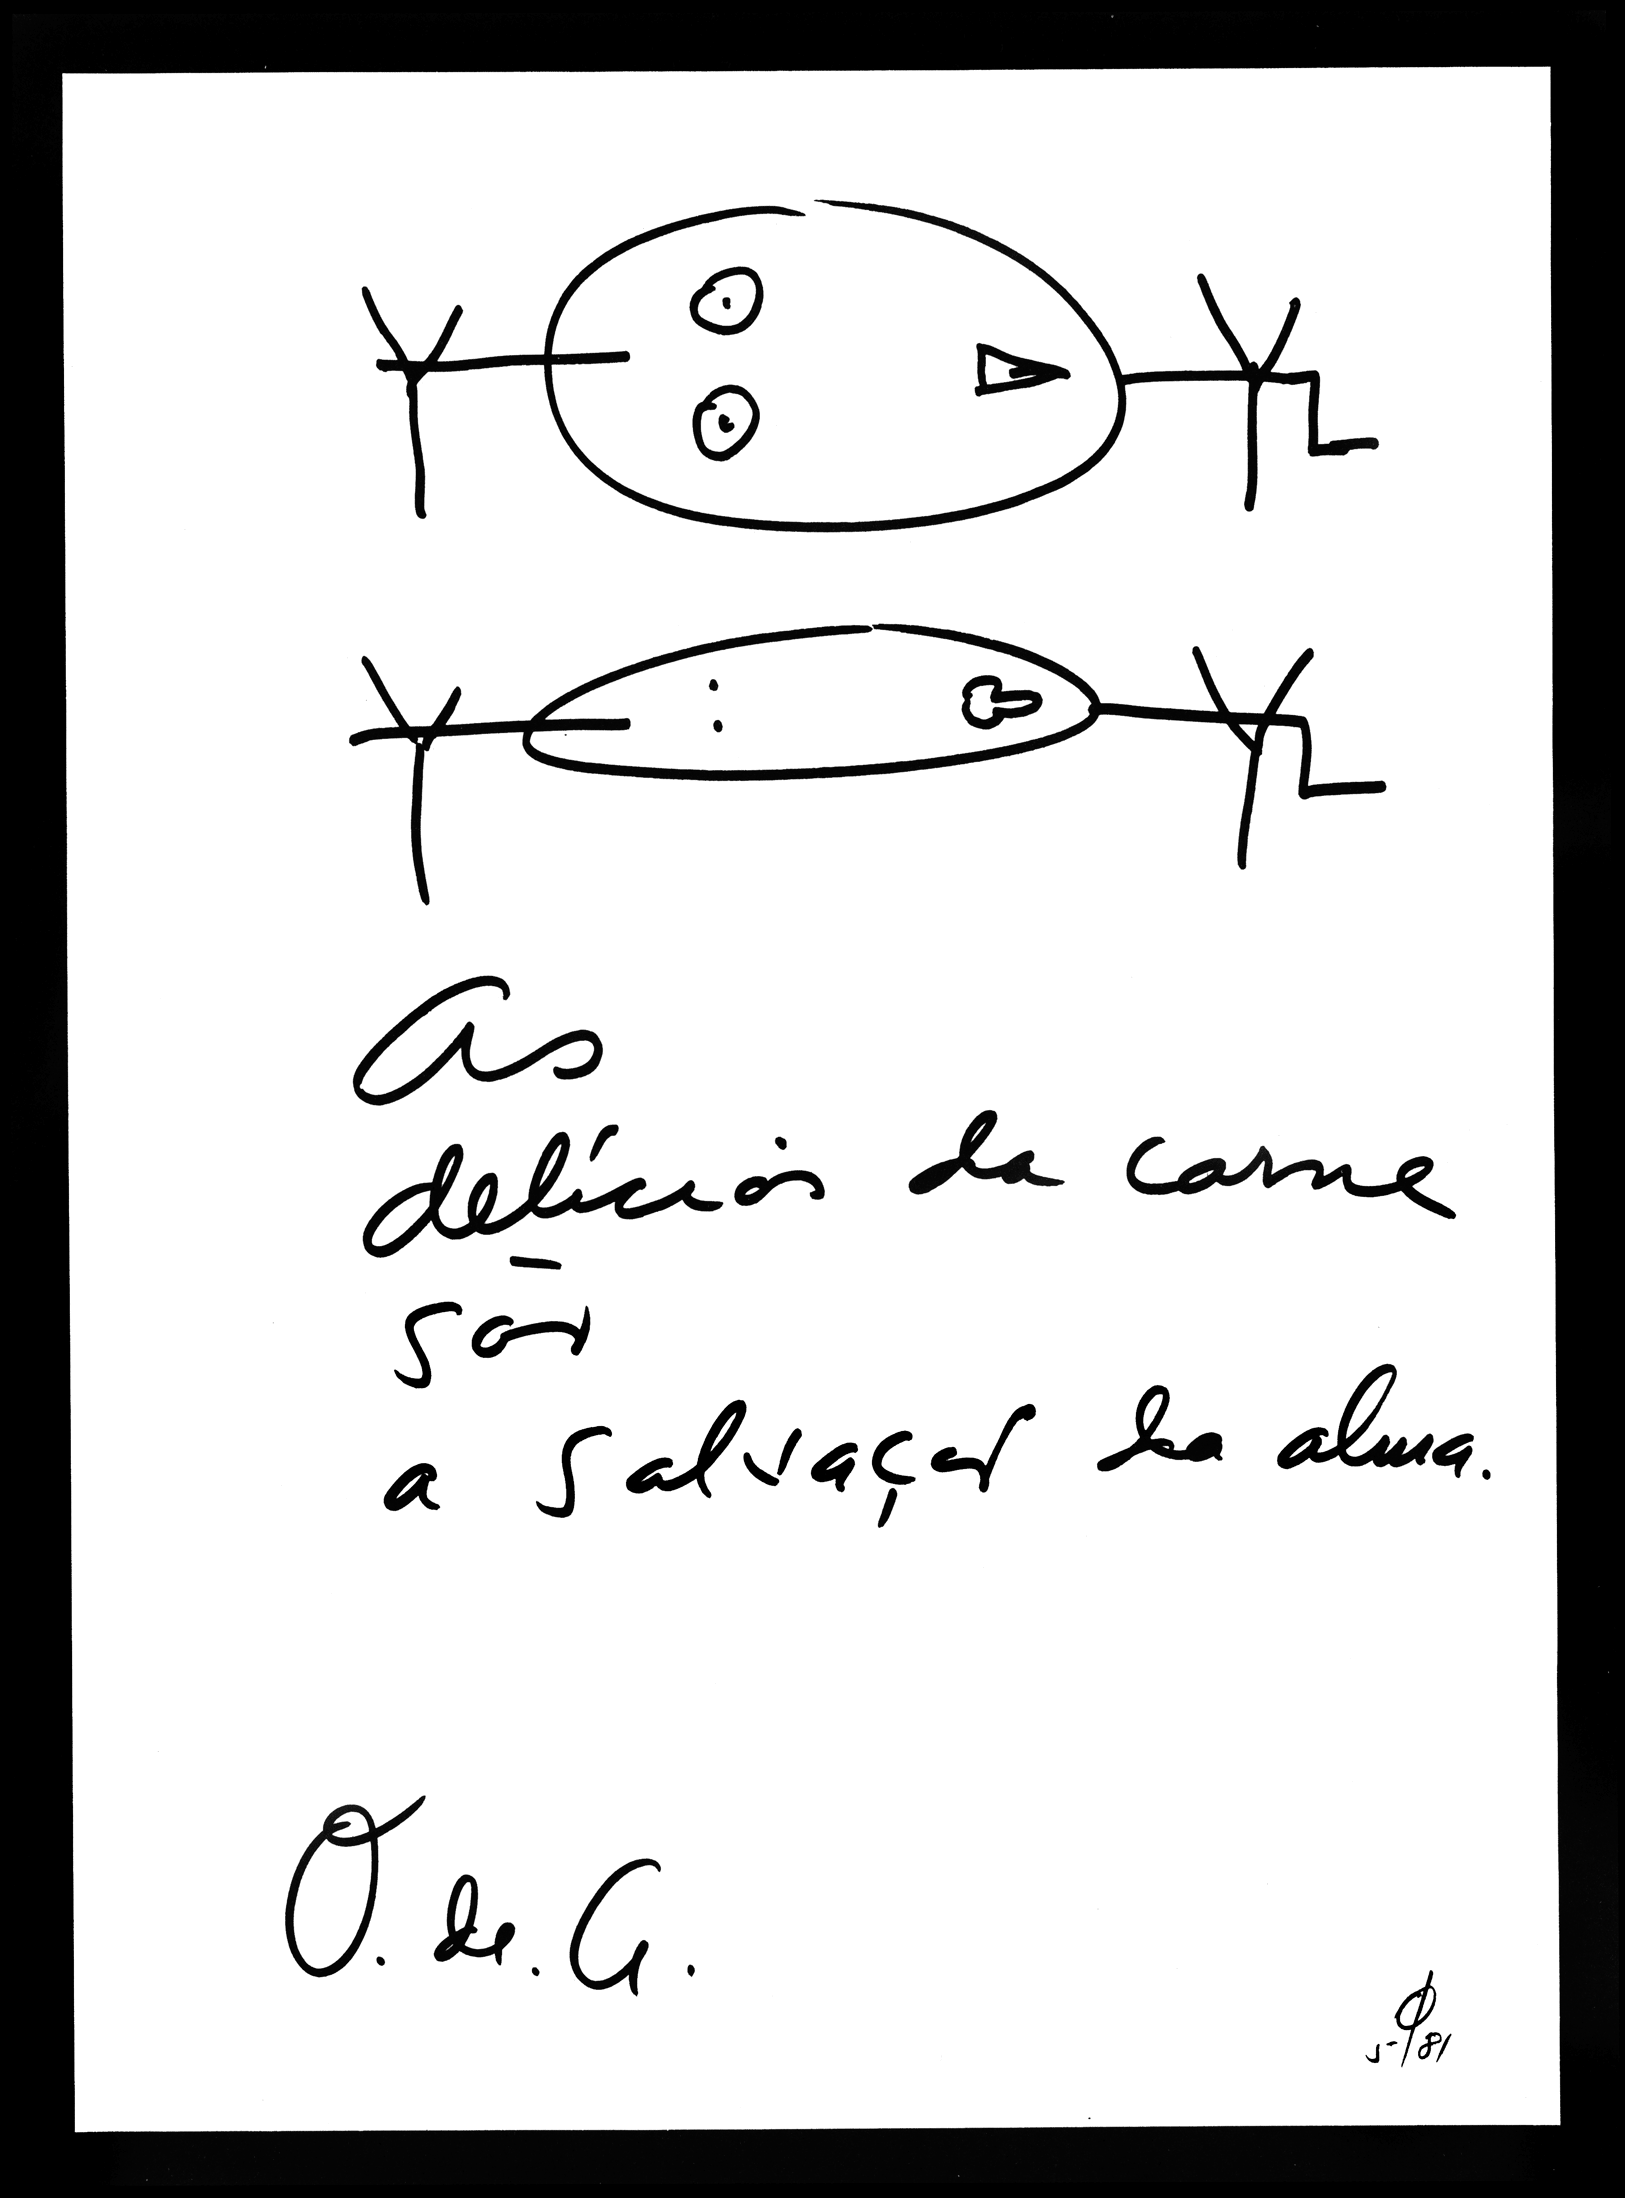 As
delícias da carne
são
a salvação da alma.
O. de. G.
5-/81